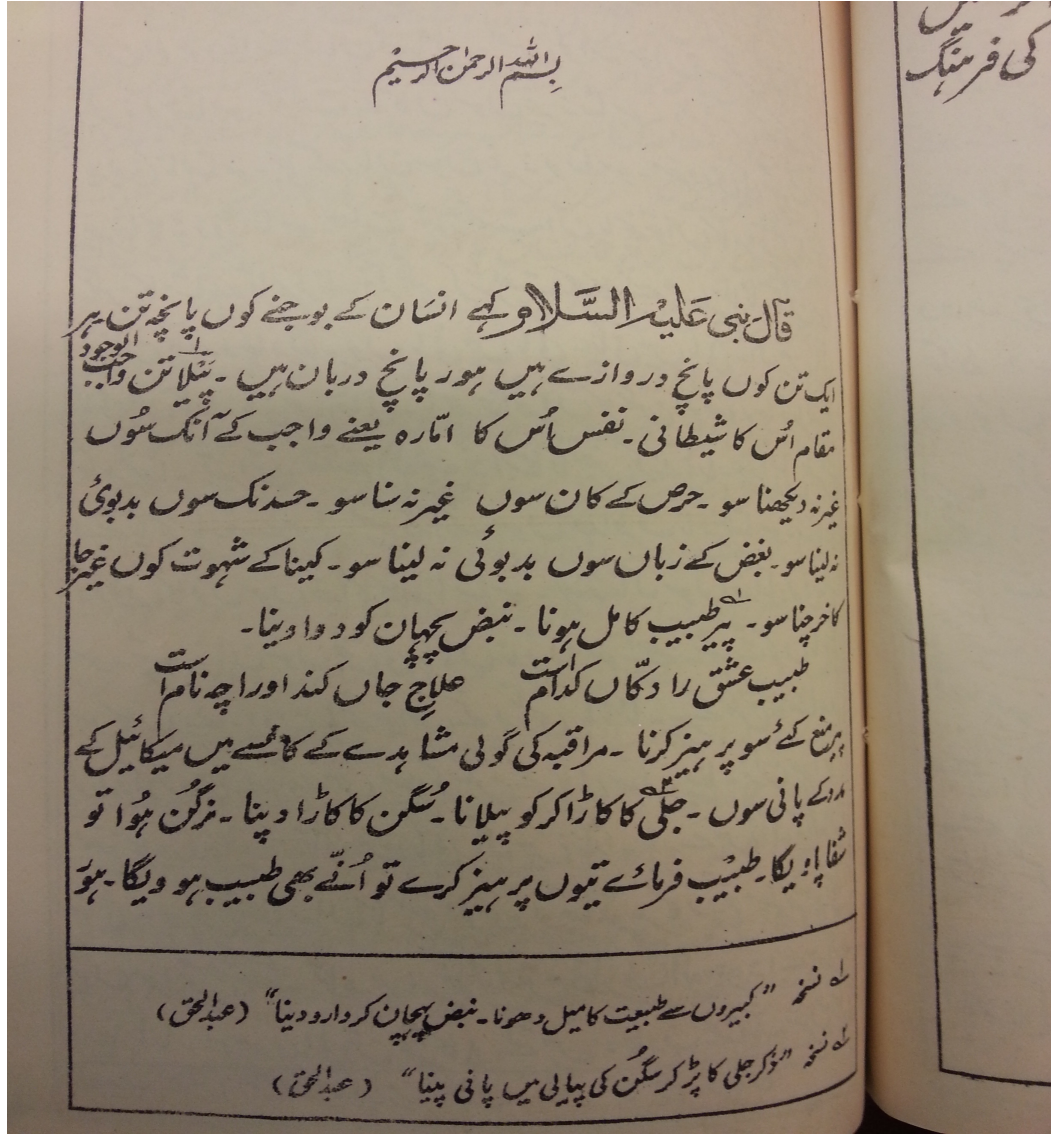 بسم اللہ الرحمٰن الرحیم
قال نبی علیہ السلام کہے انسان کے بوجنے کوں پانچہ تن ہر
ایک تن کوں پانچ دروازے ہیں ہور پانچ دربان ہیں ۔ پیلا تن واجب الوجود
مقام اُس کا شیطانی ۔ نفس اُس کا امّارہ یعنے واجب کے آنک سُوں
غیر نہ دیکھنا سو ۔ حرص کے کان سوں غیر نہ سنا سو ۔ حسد نک سوں بدبوئ
نہ لینا سو ۔ بغض کے زباں سوں بدبوئی نہ لینا سو ۔ کینا کے شہوت کوں غیر جا
کا خرچنا سو ۔ پیر طبیب کامل ہونا ۔ نبض پچہان کو دوا دینا ۔
طبیب عشق را دکّاں کدام است علاجِ جاں کند اورا چہ نام است
پر منع کئے سو پرہیز کرنا ۔ مراقبہ کی گولی مشاہدے کے کانسے میں میکائیل کے
مدد کے پانی سوں ۔ جلی کا کاڑا کر کو پیلانا ۔ سُگن کا کاڑا دینا ۔ نرگن ہُوا تو
شفا پاویگا ۔ طبیب فرمائے تیوں پرہیز کرے تو اُنّے بھی طبیب ہوویگا ۔ ہور
لہ نسخہ "کبیروں سے طبیعت کا میل دھونا ۔ نبض پہچان کر دارو دینا" (عبدالحق)
نسخہ "ذکر جلی کا پڑ کر سگُن کی پیالی میں پانی پینا" (عبدالحق)
کی فرہنگ